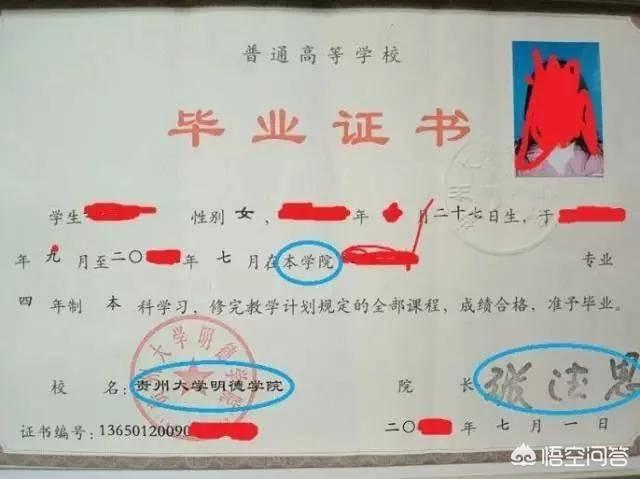 普通高等学校
毕业证书
学生 性别 女， 年 月二十七日生，于
年 九 月至二〇 年 七 月在本学院 专业
四 年制 本 科学习，修完教学计划规定的全部课程，成绩合格，准予毕业。
大学明德学院
校 名：贵州大学明德学院 院 长
证书编号：13650120090 二〇 年 七 月 一 日
悟空问答